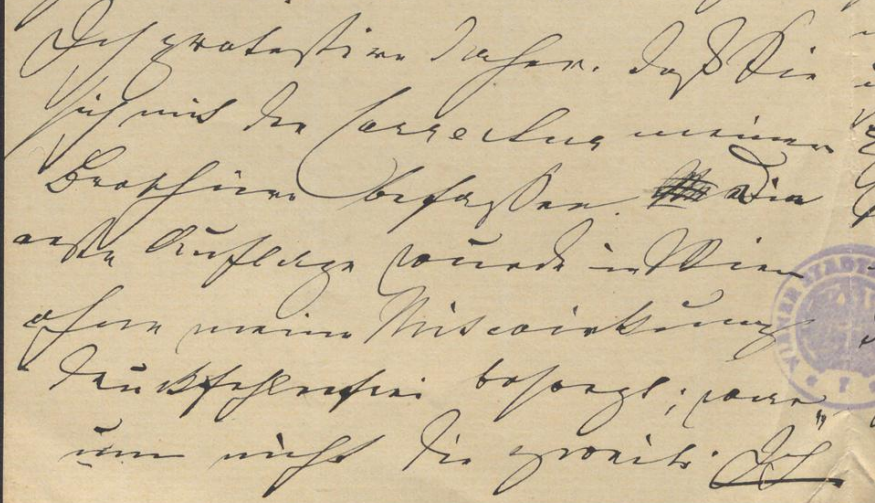 Ich protestire daher, daß Sie
sich mit der Correctur meiner
Broschüre befassen. Die
erste Auflage wurde in Wien
ohne meine Mitwirkung
druckfehlerfrei besorgt; war„
um nicht die zweite. Ich